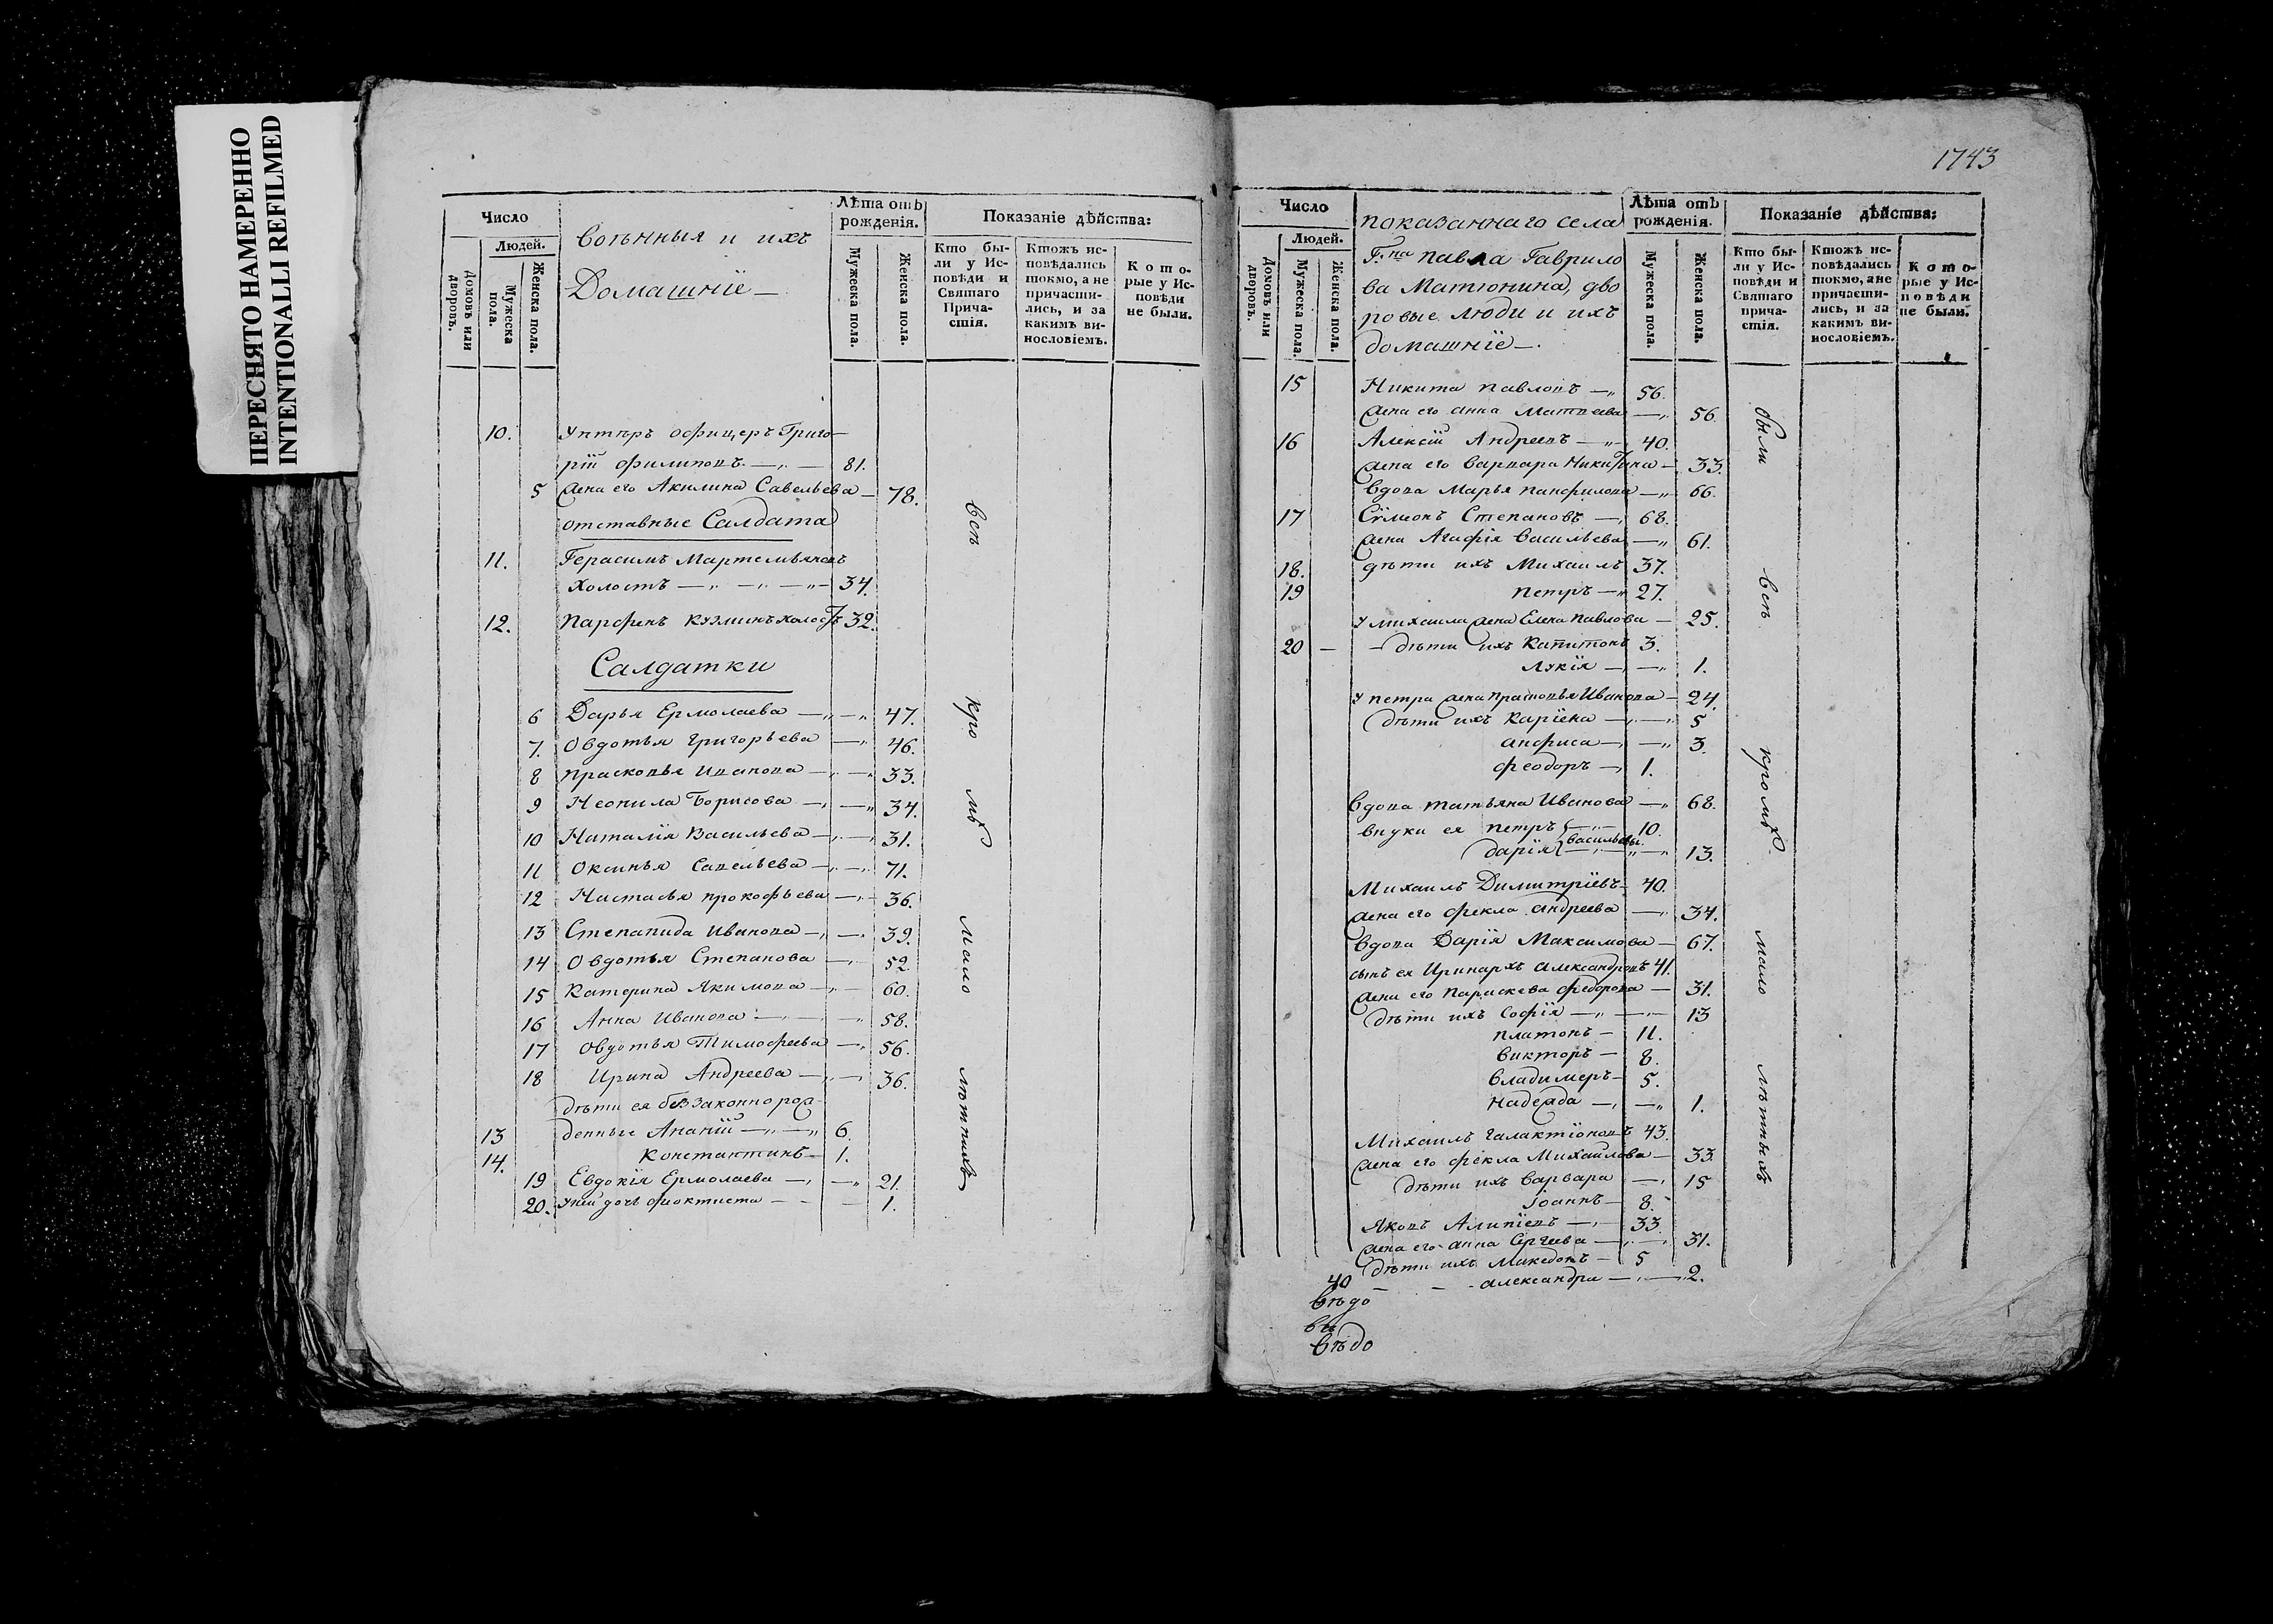 ПЕРЕСНЯТО НАМЕРЕННО
INTENTIONALLI REFILMED
Число
Людей.
Домовъ или дворовъ.
Мужеска пола.
Женска пола.
Военныя и ихъ
Домашнїе —
Лѣта отъ рожденїя.
Мужеска пола.
Женска пола.
Показанїе дѣйства:
Кто были у Исповѣди и Святаго Причастїя.
Ктожъ исповѣдались токмо, а не причастились, и за какимъ винословїемъ.
Которые у Исповѣди не были.
10. Унтеръ офицеръ Григо
рїй Филиповъ — 81.
5 Жена его Акилина Савельева — 78.
отставные Салдата
11. Герасимъ Мартемьяновъ
холостъ — 34.
12. Парфенъ Кузминъ холостъ 32.
Салдатки
6 Дарья Ермолаева — 47.
7. Овдотья Григорьева — 46.
8 Прасковья Иванова — 33.
9 Неонила Борисова — 34.
10 Наталїя Васильева — 31.
11 Оксинья Савельева — 71.
12 Настасья Прокофьева — 36.
13 Степанида Иванова — 39.
14 Овдотья Степанова — 52.
15 Катерина Якимова — 60.
16 Анна Иванова — 58.
17 Овдотья Тимофеева — 56.
18 Ирина Андреева — 36.
дѣти ея беззаконнорож
13 денные Ананїй — 6.
14. Константинъ — 1.
19 Евдокїя Ермолаева — 21.
20. у ней дочь Феоктиста — 1.
всѣ кромѣ малолѣтнихъ
1743
Число
Людей.
Домовъ или дворовъ.
Мужеска пола.
Женска пола.
показаннаго села
Г.на Павла Гаврило
ва Матюнина, дво
ровые люди и ихъ
домашнїе —.
Лѣта отъ рожденїя.
Мужеска пола.
Женска пола.
Показанїе дѣйства:
Кто были у Исповѣди и Святаго причастїя.
Ктожъ исповѣдались токмо, а не причастились, и за какимъ винословїемъ.
Которые у Исповѣди не были.
15 Никита Павловъ — 56.
Жена его Анна Матвеева — 56.
16 Алексїй Андреевъ — 40.
Жена его Варвара Никитина — 33
вдова Марья Панфилова — 66.
17 Сѵмеонъ Степановъ — 68.
Жена Агафїя Васильева — 61.
18. дѣти ихъ Михаилъ 37.
19 Петръ — 27.
у Михаила жена Елена Павлова — 25.
20 — дѣти ихъ Капитонъ 3.
Лукїя — 1.
у Петра жена Прасковья Иванова — 24.
дѣти ихъ Карїена — 5
Анфиса — 3.
Феодоръ — 1.
вдова Татьяна Иванова — 68.
внуки ея Петръ — 10.
Васильевы.
Дарїя — 13.
Михаилъ Димитрїевъ 40.
Жена его Фекла Андреева — 34.
вдова Дарїя Максимова — 67.
сынъ ея Иринархъ Александровъ 41.
Жена его Параскева Федорова — 31.
дѣти ихъ Софїя — 13
Платонъ — 11.
Викторъ — 8.
Владимеръ — 5.
Надежда — 1.
Михаилъ Галактїоновъ 43.
Жена его Фекла Михайлова — 33.
дѣти ихъ Варвара — 15
Іоаннъ — 8.
Яковъ Алипїевъ — 33.
Жена его Анна Сергеева — 31.
дѣти ихъ Македонъ — 5
Александра — 2.
были всѣ кромѣ малолѣтныхъ
40
вѣдо
вѣ
вѣдо